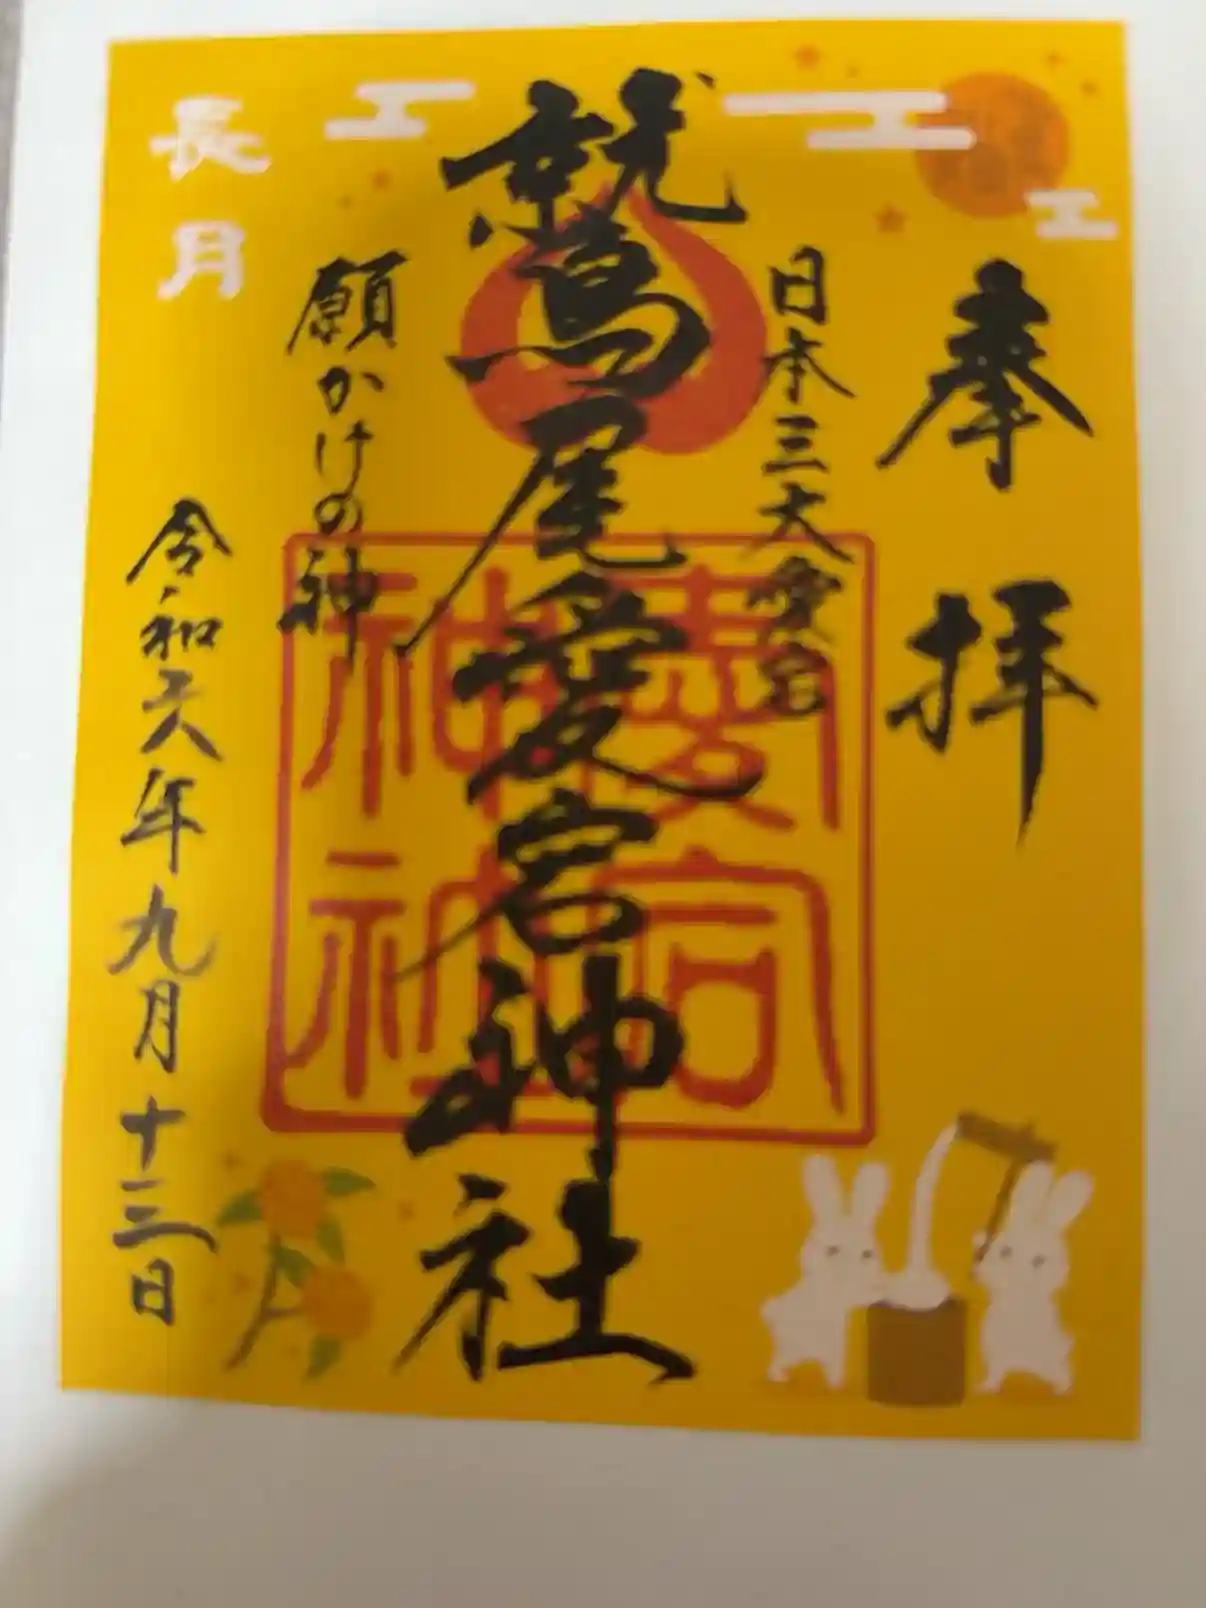 奉拝
日本三大愛宕
鷲尾愛宕神社
願かけの神
長月
令和六年九月十三日
愛宕
神社